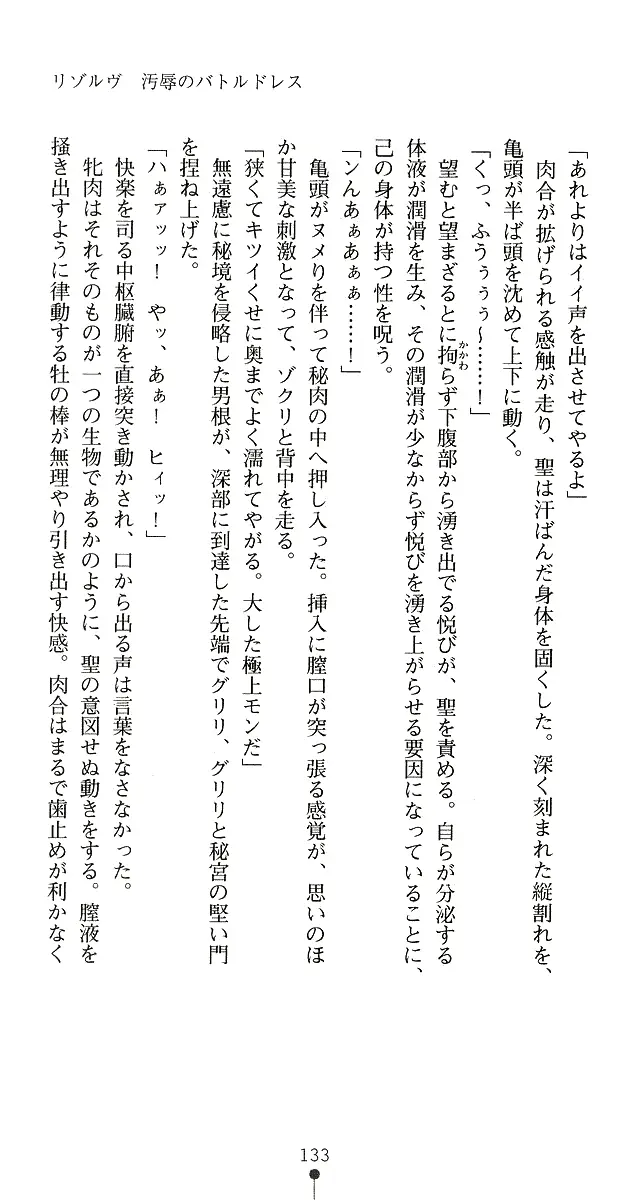 リゾルヴ　汚辱のバトルドレス
「あれよりはイイ声を出させてやるよ」
　肉合が拡げられる感触が走り、聖は汗ばんだ身体を固くした。深く刻まれた縦割れを、
亀頭が半ば頭を沈めて上下に動く。
「くっ、ふうぅぅぅ〜……！」
　望むと望まざるとに拘らず下腹部から湧き出でる悦びが、聖を責める。自らが分泌する
かかわ
体液が潤滑を生み、その潤滑が少なからず悦びを湧き上がらせる要因になっていることに、
己の身体が持つ性を呪う。
「ンんあぁあぁぁ……！」
　亀頭がヌメりを伴って秘肉の中へ押し入った。挿入に膣口が突っ張る感覚が、思いのほ
か甘美な刺激となって、ゾクリと背中を走る。
「狭くてキツイくせに奥までよく濡れてやがる。大した極上モンだ」
　無遠慮に秘境を侵略した男根が、深部に到達した先端でグリリ、グリリと秘宮の堅い門
を捏ね上げた。
「ハぁァッッ！　やッ、あぁ！　ヒィッ！」
　快楽を司る中枢臓腑を直接突き動かされ、口から出る声は言葉をなさなかった。
　牝肉はそれそのものが一つの生物であるかのように、聖の意図せぬ動きをする。膣液を
掻き出すように律動する牡の棒が無理やり引き出す快感。肉合はまるで歯止めが利かなく
133